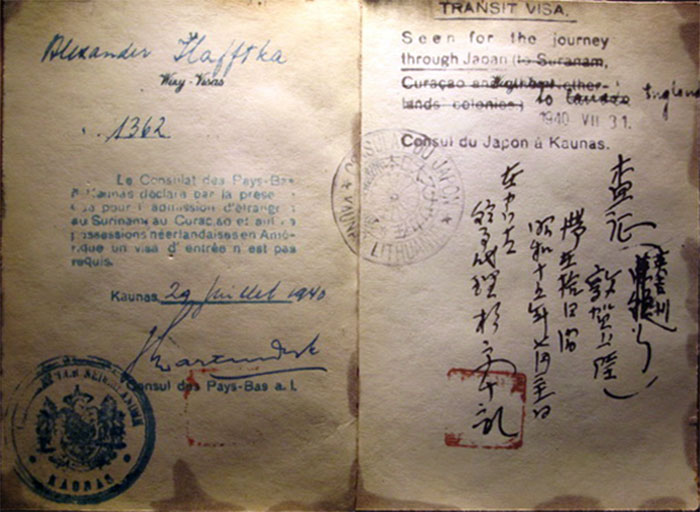 Alexander Hafftka
Wizy-Visas
1362
Le Consulat des Pays-Bas
à Kaunas déclare par la présen
pour l'admission d'étrange
au Surinam au Curaçao et
possessions néerlandaises en Amé-
rique un visa d'entrée n'est pas
requis.
Kaunas, 29 Juillet 1940
Consul des Pays-Bas a. i.
KAUNAS
TRANSIT VISA.
Seen for the journey
through Japan (to Suranam,
Curaçao and other Nether-
lands colonies) to England
1940 VII 31.
Consul du Japon à Kaunas.
DU JAPON
KAUNAS
LITHUANIE
査証
敦賀上陸
昭和十五年七月
領事代理